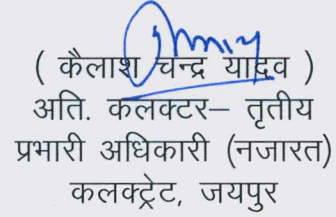 ( कैलाश चन्द्र यादव )
अति. कलक्टर– तृतीय
प्रभारी अधिकारी (नजारत)
कलक्ट्रेट, जयपुर